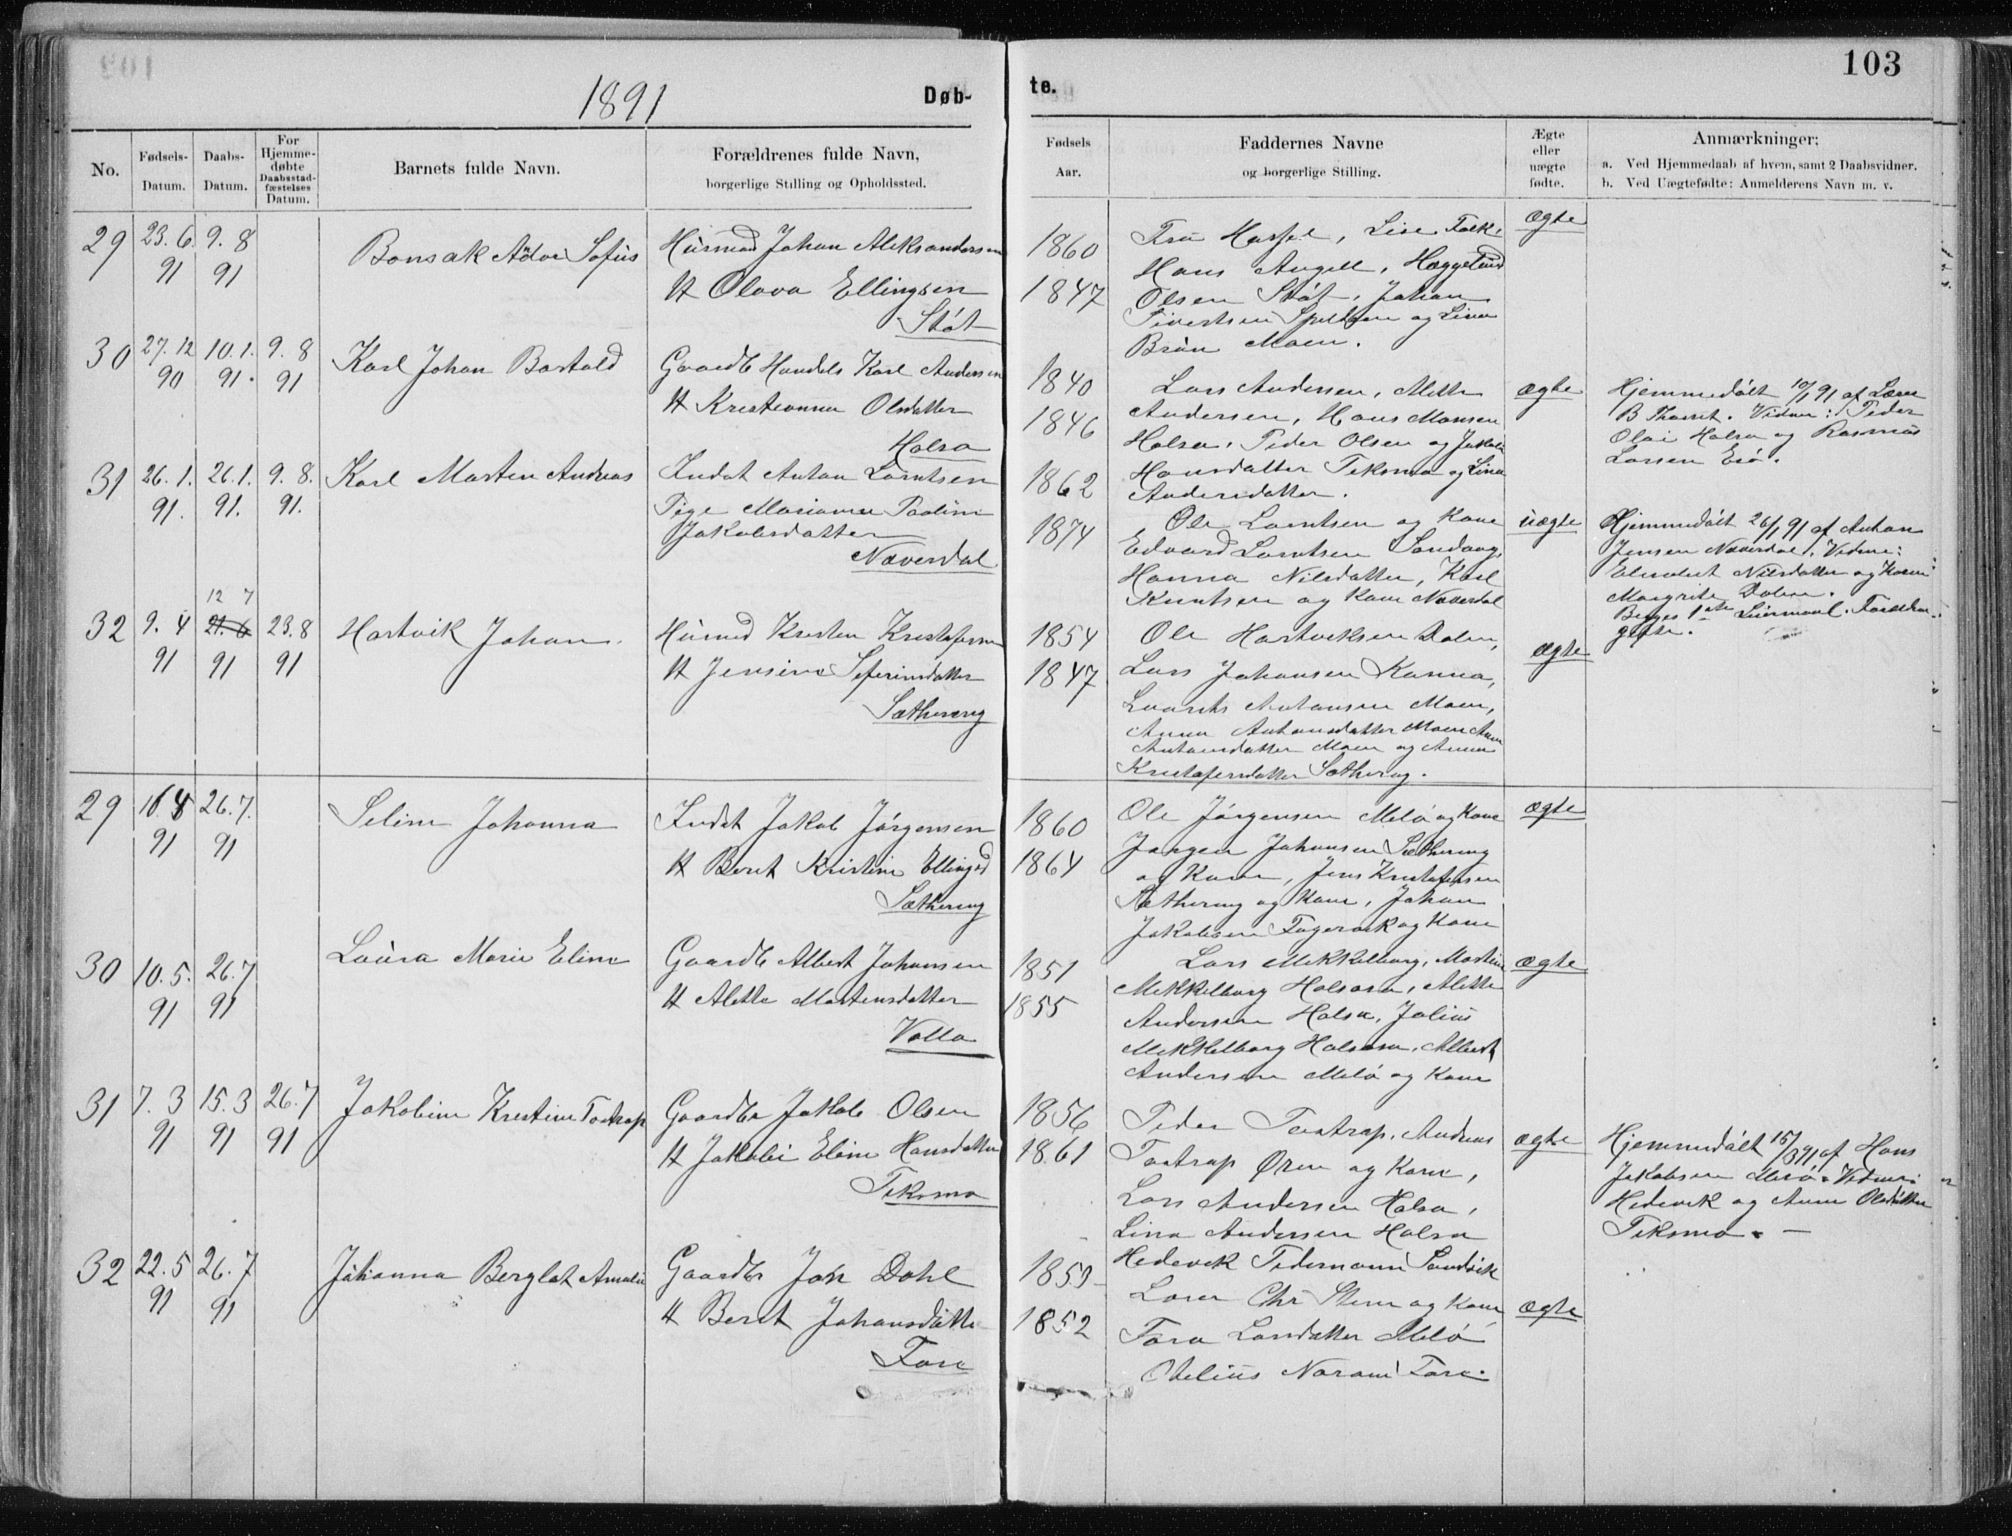 103
1891
Døb-
te.
No.
Fødsels-
Datum.
Daabs-
Datum.
For
Hjemme-
døbte
Daabsstad-
fæstelses
Datum.
Barnets fulde Navn.
Forældrenes fulde Navn,
borgerlige Stilling og Opholdssted.
Fødsels
Aar.
Faddernes Navne
og borgerlige Stilling.
Ægte
eller
uægte
fødte.
Anmærkninger:
a. Ved Hjemmedaab af hvem, samt 2 Daabsvidner.
b. Ved Uægtefødte: Anmelderens Navn m. v.
29
23.6
91
9.8
91
Bonsak Sofus
Husmd Johan Aleksandersen
H Olava Ellingsen
Støt
1860
1847
Fru Lise
Hans Angell,
Olsen Støt, Johan
Sivertsen og Lina
Brun Moen.
ægte
30
27.12
90
10.1.
91.
9.8
91
Karl Johan Bartold
Gaardb Handels Karl Andersen
H Kristianna Olsdatter
Halsa
1840
1846
Lars Andersen, Mette
Andersen, Hans Monsen
Halsa, Peder Olsen og Jakobi
Hansdatter Teksmo og Lina
Andersdatter.
ægte
Hjemmedøbt 10/1 91 af
B Vidner: Peder
Olai Halsa og Rasmus
Larsen
31
26.1.
91.
26.1.
91.
9.8.
91.
Karl Morten Andreas
Indst Anton Lorntsen
Pige Marianna Paoline
Jakobsdatter
Næverdal
1862
1874
Ole Lorntsen og Kone
Edvard Lorntsen
Hanna Nilsdatter, Karl
Knutsen og Kone Næverdal
uægte
Hjemmedøbt 26/1 91 af Anton
Jensen Næverdal. Vidne:
Elisabet Nilsdatter og Karen
Margrite Dalen.
Begges 1ste Leiermaal. Forældre
gifte.
32
9.4
91
12 7
21.6
91
23.8
91
Hartvik Johan
Husmd Kresten Kristofersen
H Jensine Seferinsdatter
Sæthereng
1854
1847
Ole Hartviksen Dalen,
Lars Johansen Kanna,
Antonsen Moen,
Anna Antonsdatter Moen Anne
Antonsdatter Moen og Anna
Kristofersdatter Sæthereng.
ægte
29
91
26.7.
91
Seline Johanna
Indst Jakob Jørgensen
H Berit Kristine Ellingsd
Sæthereng
1860
1864
Ole Jørgensen Melø og Kone
Jørgen Johansen Sæthereng
og Kone, Jens Kristofersen
Sæthereng og Kone, Johan
Jakobsen Fagervik og Kone
ægte
30
10.5.
91
26.7
91
Laura Marie Eline
Gaardb Albert Johansen
H Alette Mortensdatter
Valla
1851
1855
Lars Mikkelborg, Martine
Mikkelborg Halsosa, Mette
Andersen Halsa, Julius
Mikkelborg Halsosa, Albert
Andersen Melø og Kone
ægte
31
7.3
91
15.3
91
26.7
91
Jakobine Kristine Tostrup
Gaardbr Jakob Olsen
H Jakobi Eline Hansdatter
Teksmo
1856
1861
Peder Tostrup, Andreas
Tostrup Øren og Kone,
Lars Andersen Halsa,
Lina Andersen Halsa
Hedevik Pedersonn Sandvik
ægte
Hjemmedøbt 15/3 91 af Hans
Jakobsen Melø. Vidner:
Hedevik og Anne Olsdatter
Teksmo. —
32
22.5
91
26.7
91
Johanna Berglot Amalie
Gaardbr Jon Dahl
H Berit Johansdatter
Fore
1859
1852
Chr Steen og Kone
Fora Larsdatter Melø
Fore.
ægte